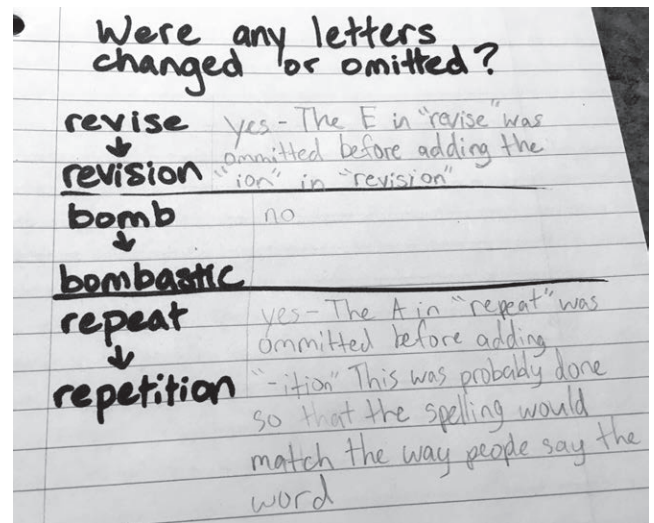 Were any letters
changed or omitted?
revise yes - The E in "revise" was
↓ ommitted before adding the
revision "ion" in "revision"
bomb no
↓
bombastic
repeat yes - The A in "repeat" was
↓ ommitted before adding
repetition "-ition" This was probably done
so that the spelling would
match the way people say the
word